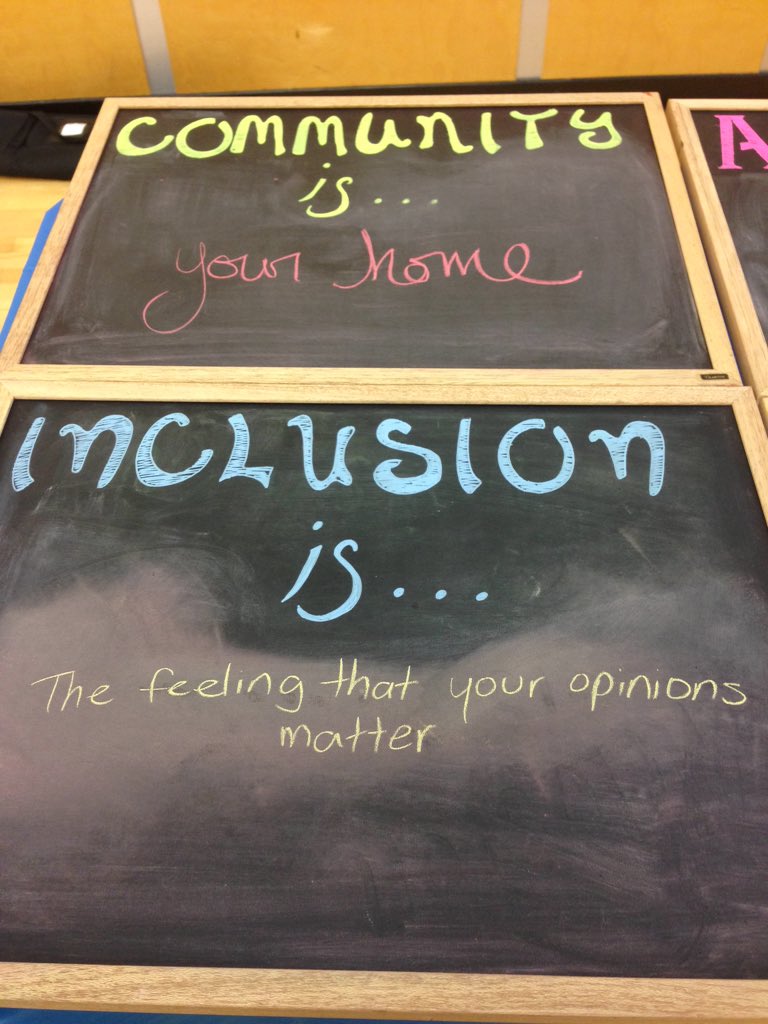 COMMUNITY
is...
your home
A
INCLUSION
is...
The feeling that your opinions
matter